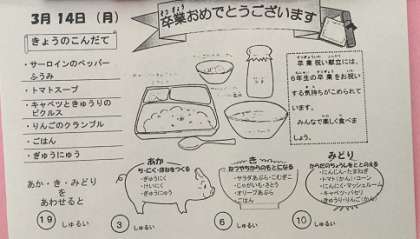 3月 14日 (月)
卒業おめでとうございます
きょうのこんだて
・サーロインのペッパー
ふうみ
・トマトスープ
・キャベツときゅうりの
ピクルス
・りんごのクランブル
・ごはん
・ぎゅうにゅう
卒業祝い献立には、
6年生の卒業をお祝い
する気持がこめられて
います。
みんなで楽しく食べま
しょう。
あか・き・みどり
を
あわせると
19 しゅるい
あか
ち・にく・ほねをつくる
・ぎゅうにく
・けいにく
・ぎゅうにゅう
3 しゅるい
き
ねつやちからのもとになる
・サラダあぶら・こむぎこ
・じゃがいも・さとう
・オリーブあぶら
・ごはん
6 しゅるい
みどり
からだのちょうしをととのえる
・にんじん・たまねぎ
・トマト(かん)・コーン
・にんにく・マッシュルーム
・キャベツ・パセリ
・きゅうり・りんご(かん)
10 しゅるい